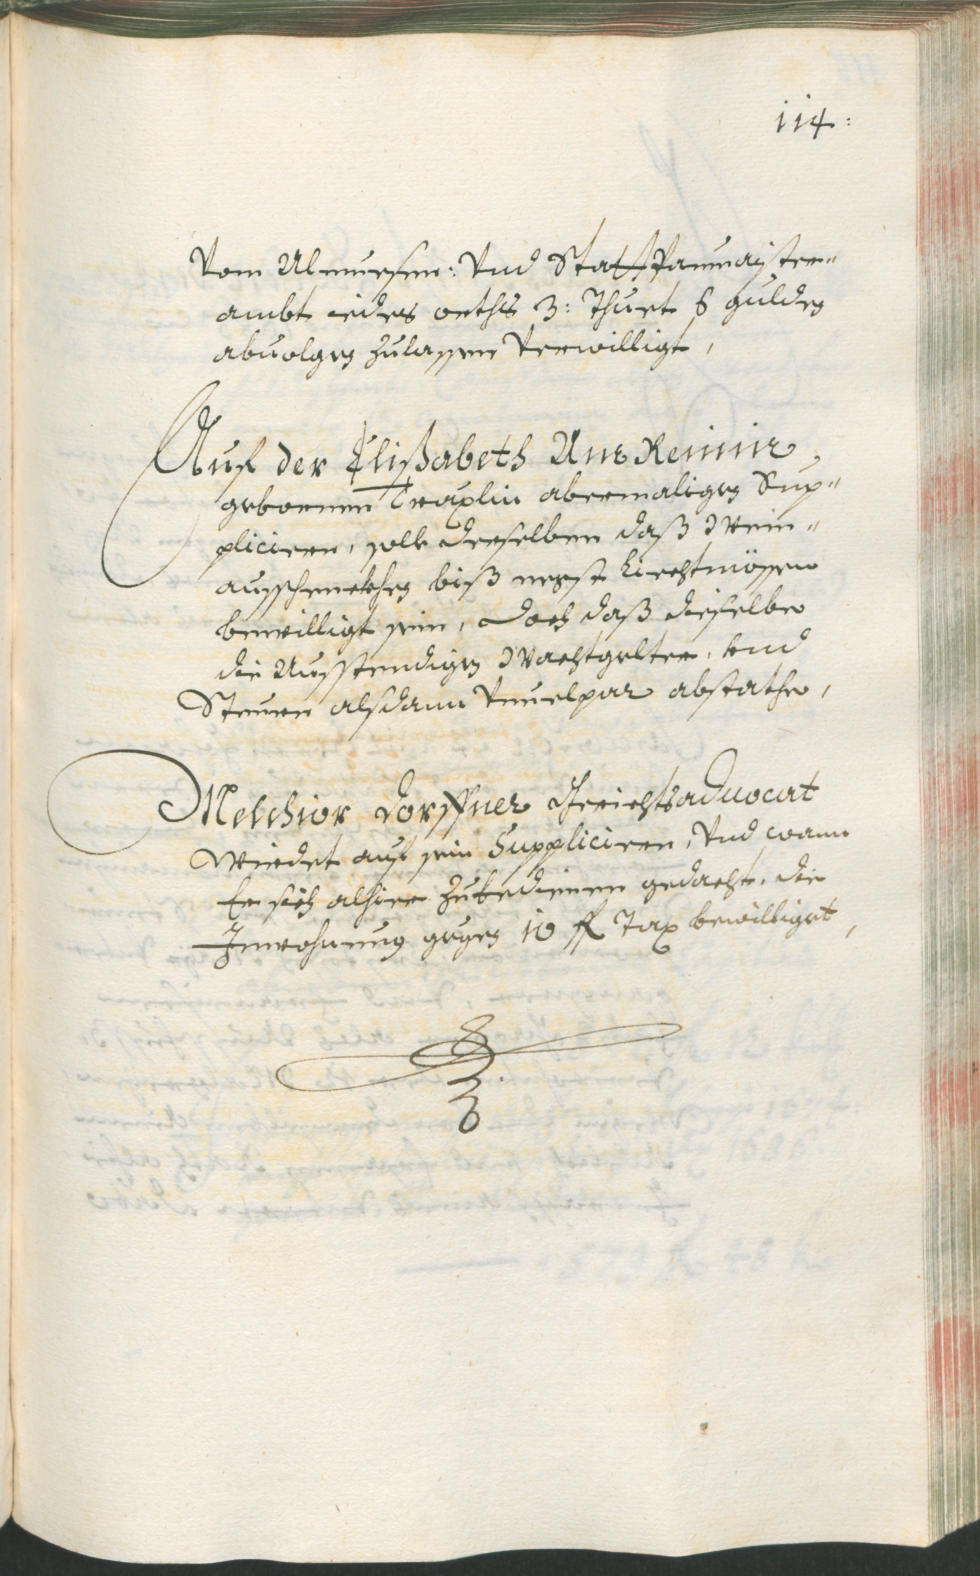 114:
Vom Almuesen: Vnd Statt Paumaister-
ambt iedes orths 3: Thuet 6 gulden
abuolgen zulassen Verwilligt,
Auf der Elisabeth
gebornen Traxlin abermaliges Sup-
pliciren, solle derselben daß Wein-
ausschenckhen biß negst Liechtmössen
bewilligt sein, doch daß dieselbe
die Ausstendigen Wachtgelter, vnd
Steuer alsdann abstathe,
Melchior Dorffner Gerichtsaduocat
Würdet auf sein Suppliciren, Vnd wann
Er sich alhier zubedienen gedacht, die
Inwohnung gegen 10 fl Tax bewilligt,